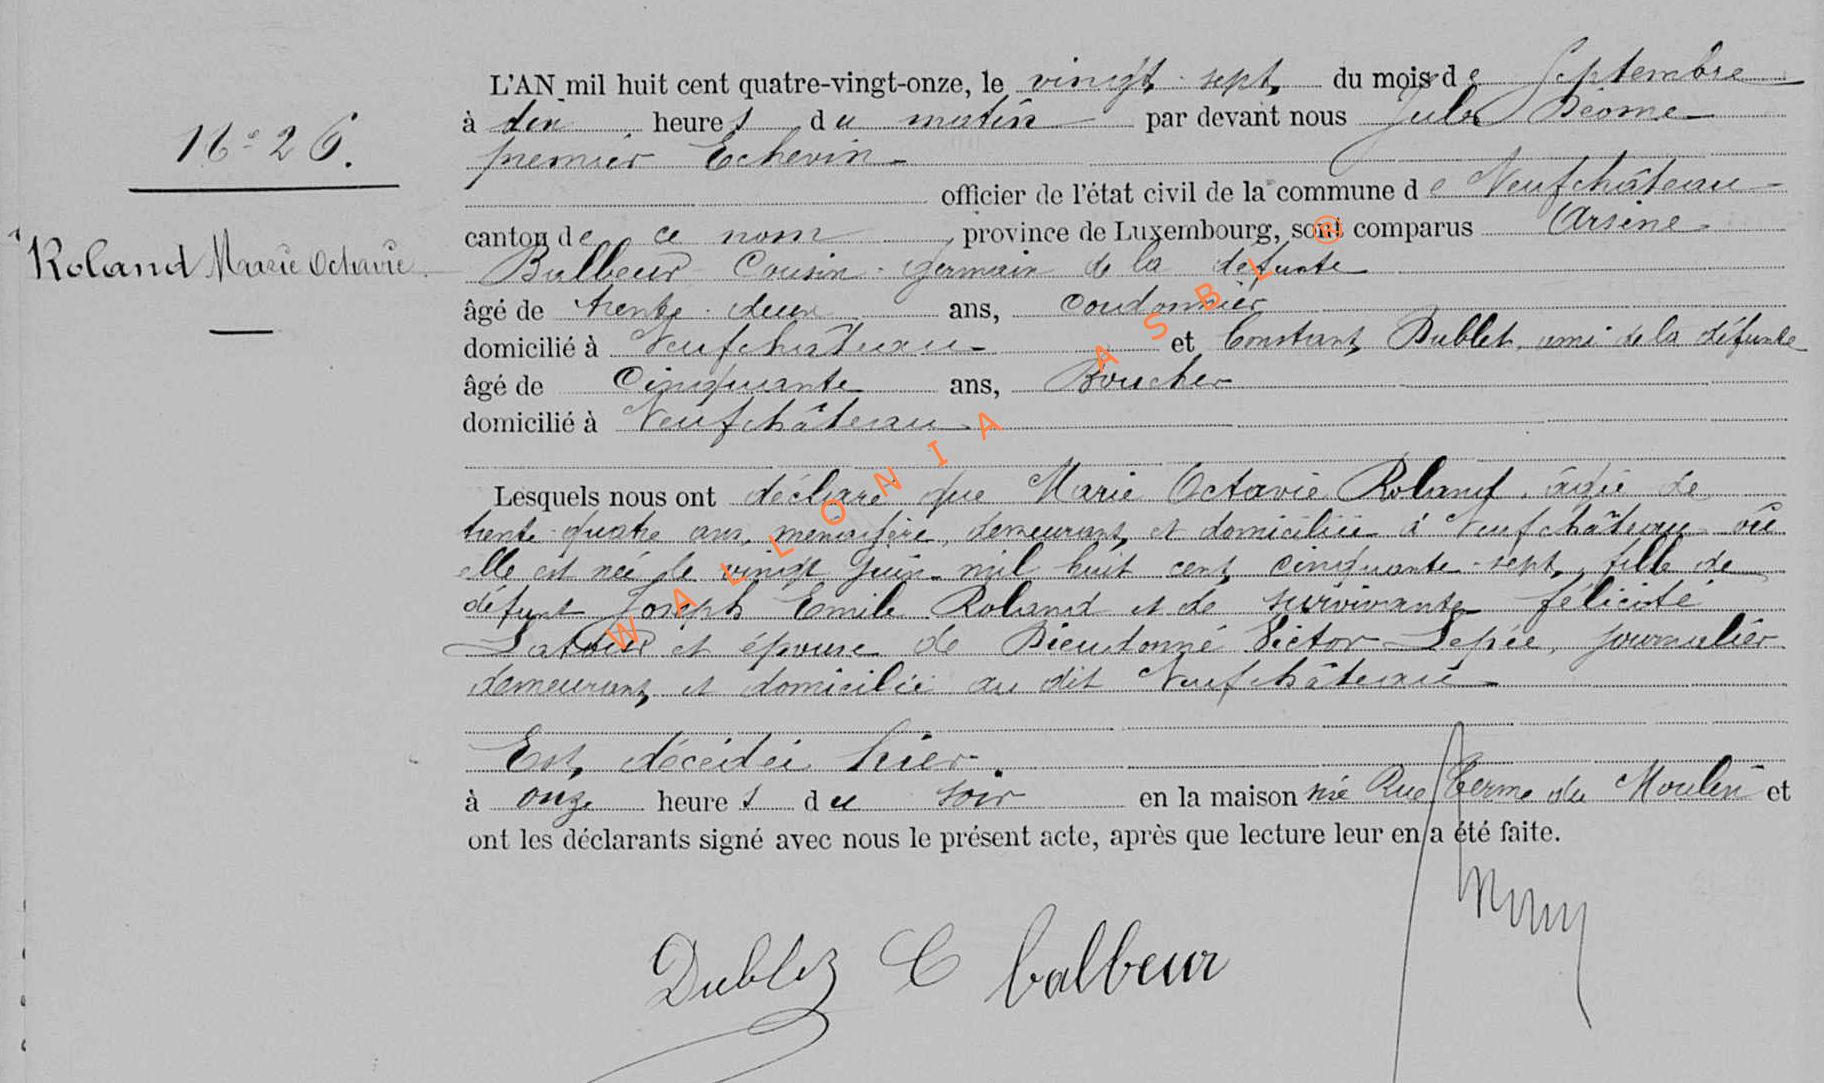 L'AN mil huit cent quatre-vingt-onze, le vingt-sept du mois de Septembre
à dix heures du matin par devant nous Jules
premier Echevin
N° 26.
officier de l'état civil de la commune de Neufchâteau
Roland Marie Octavie
canton de ce nom, province de Luxembourg, sont comparus Arsène
Balbeur Cousin germain de la défunte
âgé de trente-deux ans, Cordonnier
domicilié à Neufchâteau et Constant Dublet, ami de la défunte
âgé de Cinquante ans, Boucher
domicilié à Neufchâteau
Lesquels nous ont déclaré que Marie Octavie Roland, âgée de
trente-quatre ans, ménagère, demeurant et domiciliée à Neufchâteau où
elle est née le vingt Juin mil huit cent cinquante-sept, fille de
défunt Joseph Emile Roland et de survivante félicité
et épouse de Dieudonné Victor Lepée, journalier
demeurant et domicilié au dit Neufchâteau
Est décédée hier
à onze heures du soir en la maison sise Rue Terme du Moulin et
ont les déclarants signé avec nous le présent acte, après que lecture leur en a été faite.
Dublez C balbeur
WALLONIA ASBL ®